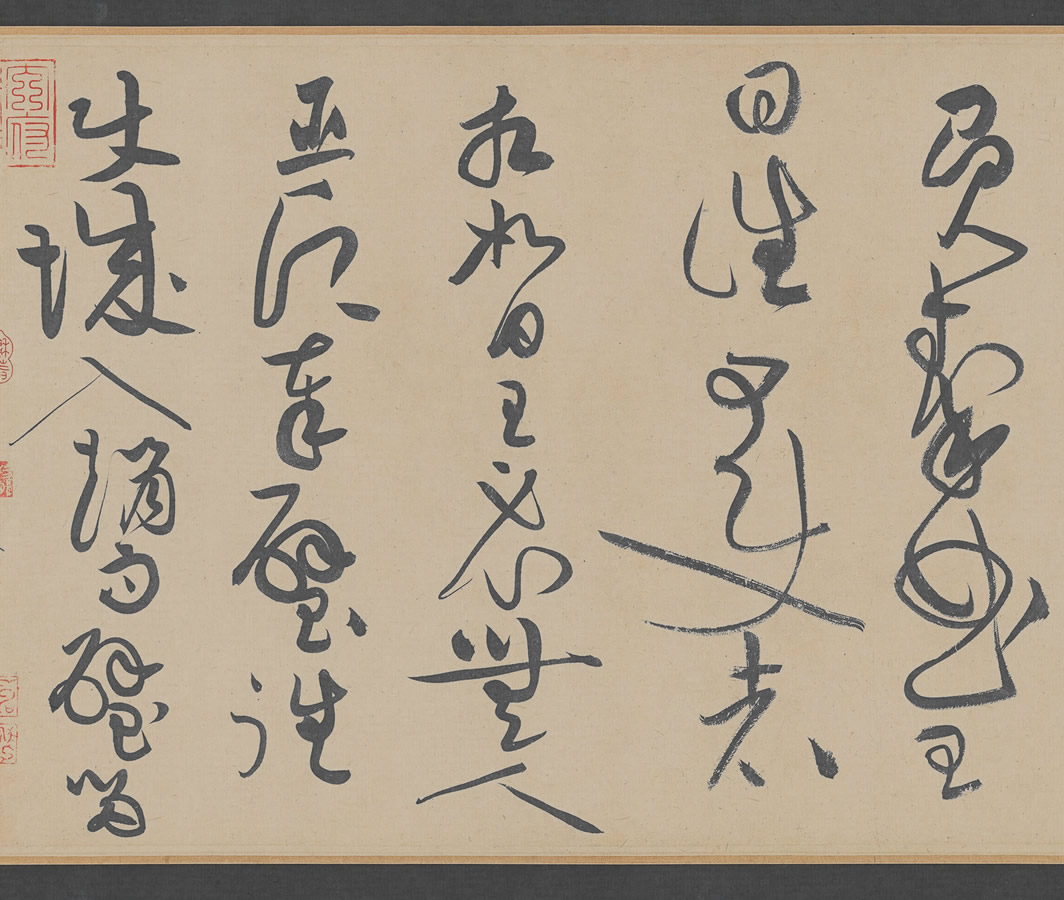 負秦曲王
曰誰可使者
相如曰王必無人
臣願奉璧往
使城入趙而璧留